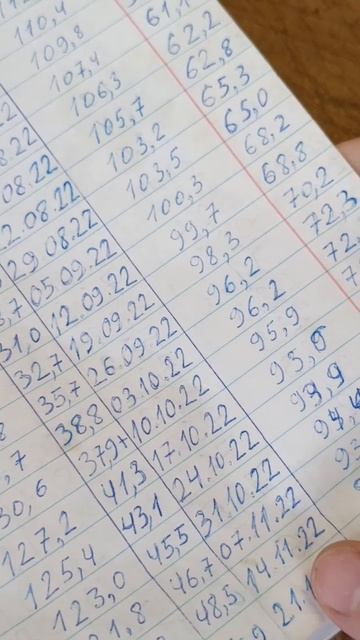 130,6
127,2
125,4
123,0
31,0
32,7
35,7
38,8
37,9
41,3
43,1
45,5
46,7
48,5
08.22
29.08.22
05.09.22
12.09.22
19.09.22
26.09.22
03.10.22
10.10.22
17.10.22
24.10.22
31.10.22
07.11.22
14.11.22
110,4
109,8
107,4
106,3
105,7
103,2
103,5
100,3
99,7
98,3
96,2
96,2
95,9
93,6
61,1
62,2
62,8
65,3
65,0
68,2
68,8
70,2
72,3